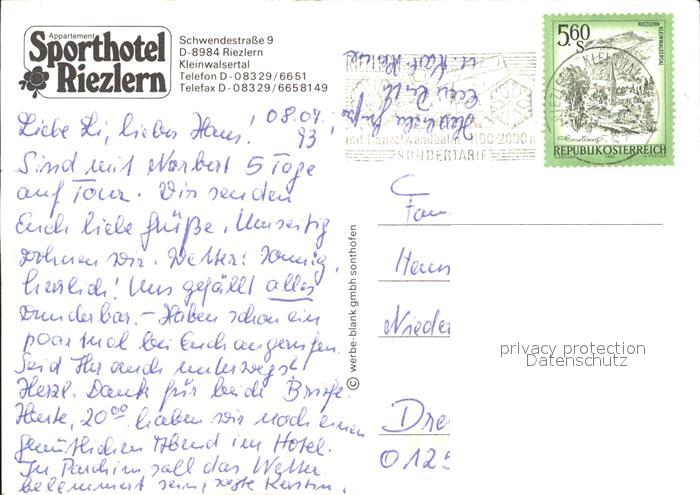 Appartement
Sporthotel
Riezlern
Schwendestraße 9
D-8984 Riezlern
Kleinwalsertal
Telefon D-08329/6651
Telefax D-08329/6658149
08.07.
93
Liebe Li, lieber Hans!
Sind mit Norbert 5 Tage
auf Tour. Wir senden
Euch liebe Grüße. Umseitig
wohnen wir. Wetter: sonnig,
herrlich! Uns gefällt alles
wunderbar. – Haben schon ein
paar mal bei Euch angerufen.
Seid Ihr auch unterwegs?
Herzl. Dank für beide Briefe.
Heute, 20⁰⁰ haben wir noch einen
gemütlichen Abend im Hotel.
In Parchim soll das Wetter
belemmert sein, sagte Kerstin.
Herzliche Grüße
u. Karl-Heinz
© werbe-blank gmbh sonthofen
100-2000 m
SONDERTARIF
5.60
S
RIEZLERN
KLEINWALSERTAL
REPUBLIK ÖSTERREICH
Fam.
Hans
Nieder
Dre
0125
privacy protection
Datenschutz